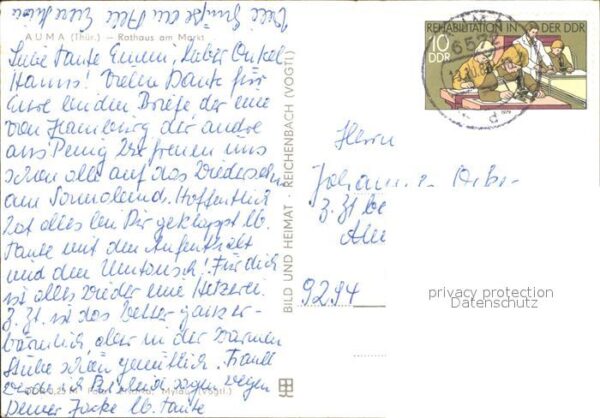 Viele Grüße an Alle Eure
AUMA (Thür.) — Rathaus am Markt
Liebe Tante Emmi, Lieber Onkel
Hanns! Vielen Dank für
Eure beiden Briefe der eine
von Hamburg der andre
aus Penig. Wir freuen uns
schon alle auf das Wiedersehn
am Sonnabend. Hoffentlich
hat alles bei Dir geklappt lb.
Tante mit dem Aufenthalt
und dem Umtausch! Für Dich
ist alles wieder eine Hetzerei.
Z. Zt. ist das Wetter ganz er-
bärmlich aber in der warmen
Stube schön gemütlich.
wegen
Deiner Jacke lb. Tante
BILD UND HEIMAT · REICHENBACH (VOGTL)
REHABILITATION IN DER DDR
10
DDR
Herrn
Z. Zt be
9294
privacy protection
Datenschutz